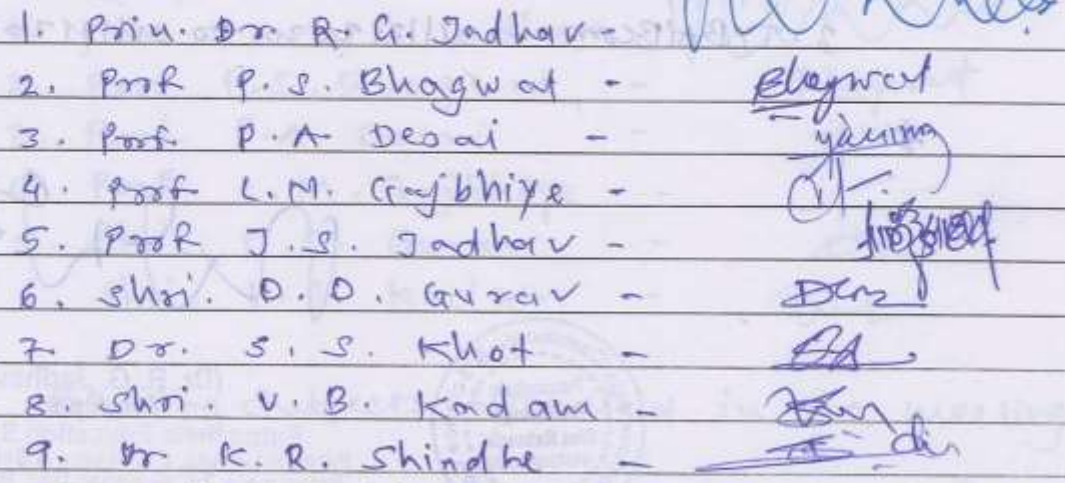 1. Prin. Dr. R. G. Jadhav -
2. Prof P. S. Bhagwat - Bhagwat
3. Prof. P. A Desai -
4. Prof L. M. Gajbhiye -
5. Prof J. S. Jadhav -
6. Shri. D. D. Gurav -
7 Dr. S. S. Khot -
8. Shri. V. B. Kadam -
9. Dr K. R. Shindhe -